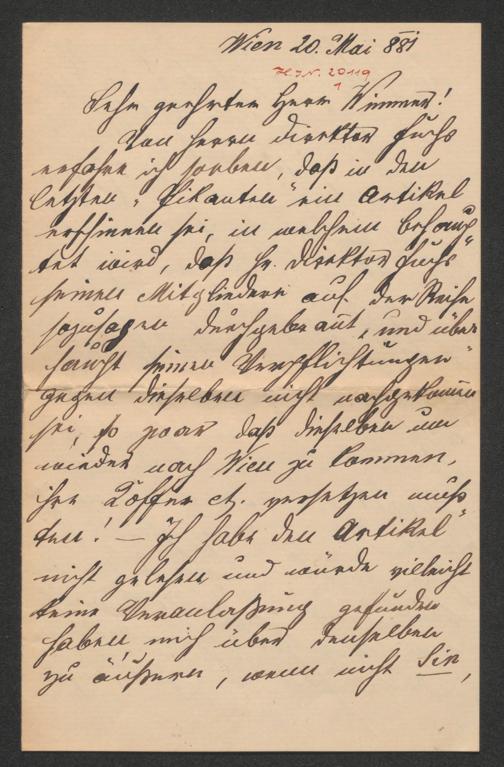 Wien 20. Mai 881
H.I.N. 20119
1
Sehr geehrter Herr Wimmer!
Von Herrn Direktor Fuchs
erfahre ich soeben, daß in den
letzten „Pikanten“ ein Artikel
erschienen sei, in welchem behaup
tet wird, daß Hr. Direktor Fuchs
seinen Mitgliedern auf der Reise
sozusagen durchgebrannt, und über
haupt seinen Verpflichtungen
gegen dieselben nicht nachgekommen
sei, so zwar daß dieselben um
wieder nach Wien zu kommen,
ihre Koffer etz. versetzen muß
ten! — Ich habe den Artikel
nicht gelesen und würde vielleicht
keine Veranlaßung gefunden
haben, mich über denselben
zu äußern, wenn nicht Sie,